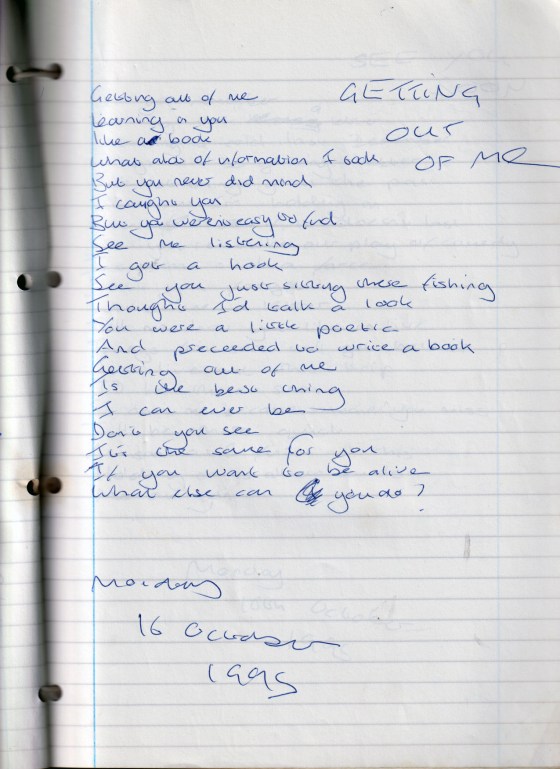 GETTING
OUT
OF ME
Getting out of me
Learning in you
like a book
What alot of information I took
But you never did mind
I caught you
But you were no easy to find
See me listening
I got a hook
See you just sitting there fishing
Thought I'd talk a look
You were a little poetic
And preceeded to write a book
Getting out of me
Is the best thing
I can ever be
Don't you see
It's the same for you
If you want to be alive
What else can you do?
Monday
16 October
1995